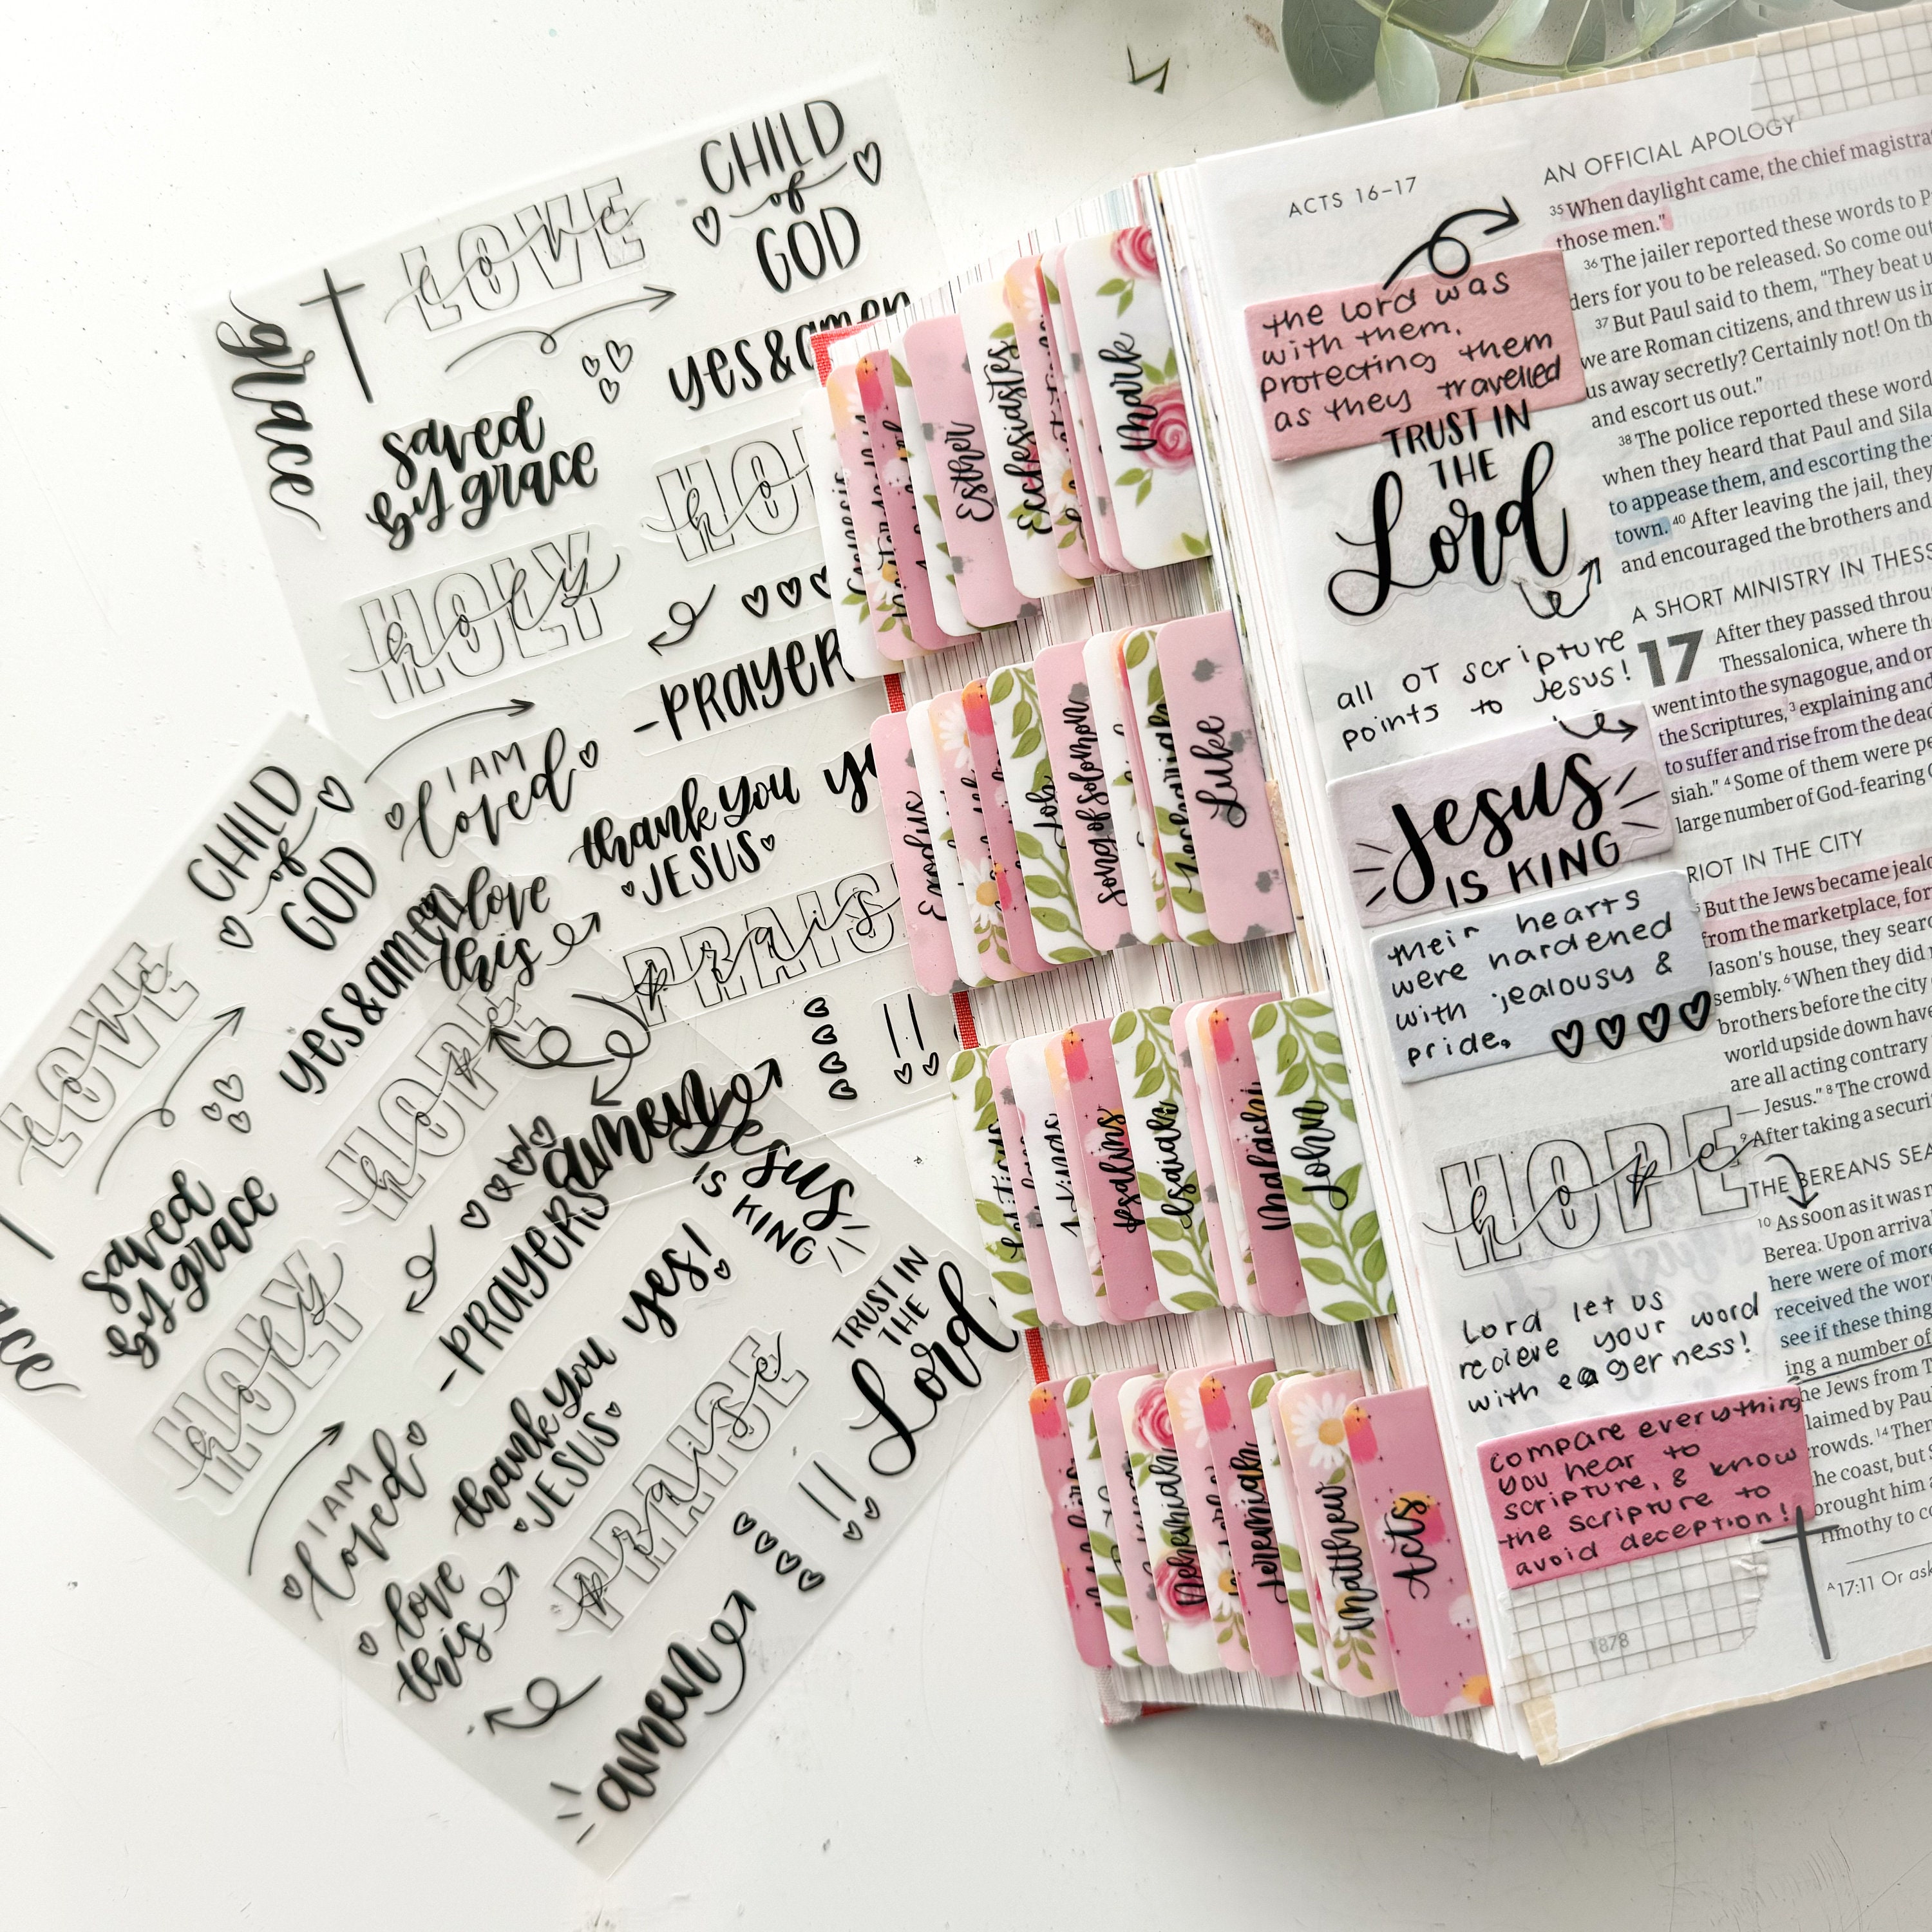 CHILD
of
GOD
LOVE
love
grace
yes & amen
saved
by grace
HOLY
holy
-PRAYER
I AM
loved
thank you
JESUS
love
this
PRAISE
praise
amen
CHILD
of
GOD
LOVE
love
yes & amen
HOPE
hope
saved
by grace
HOLY
holy
-PRAYERS
Jesus
IS
KING
yes!
TRUST IN
THE
Lord
I AM
loved
thank you
JESUS
PRAISE
praise
love
this
amen
Esther
Ecclesiastes
Mark
Exodus
Job
Song of Solomon
Zechariah
Luke
Psalms
Isaiah
Malachi
John
Nehemiah
Jeremiah
Matthew
Acts
ACTS 16–17
the Lord was
with them,
protecting them
as they travelled
TRUST IN
THE
Lord
all OT scripture
points to Jesus!
Jesus
IS KING
their hearts
were hardened
with jealousy &
pride.
HOPE
hope
Lord let us
recieve your word
with eagerness!
compare everything
you hear to
scripture, & know
the scripture to
avoid deception!
1878
AN OFFICIAL APOLOGY
35 When daylight came, the chief
those men."
36 The jailer reported these words to
ders for you to be released. So come out
37 But Paul said to them, "They beat
we are Roman citizens, and threw us
us away secretly? Certainly not! On
and escort us out."
38 The police reported these
when they heard that Paul and
to appease them, and escorting
town. 40 After leaving the jail, they
and encouraged the brothers and
A SHORT MINISTRY IN
17 After they passed
Thessalonica, where
went into the synagogue, and
the Scriptures, 3 explaining and
to suffer and rise from the
siah." 4 Some of them were
large number of God-fearing
RIOT IN THE CITY
5 But the Jews became
from the marketplace,
Jason's house, they
sembly. 6 When they did
brothers before the city
world upside down have
are all acting contrary
— Jesus." 8 The crowd
9 After taking a
THE BEREANS
10 As soon as it was
Berea. Upon
here were of more
received the
see if these
ing a number of
the Jews from
claimed by
crowds. 14
the coast, but
brought him
Timothy to
A 17:11 Or